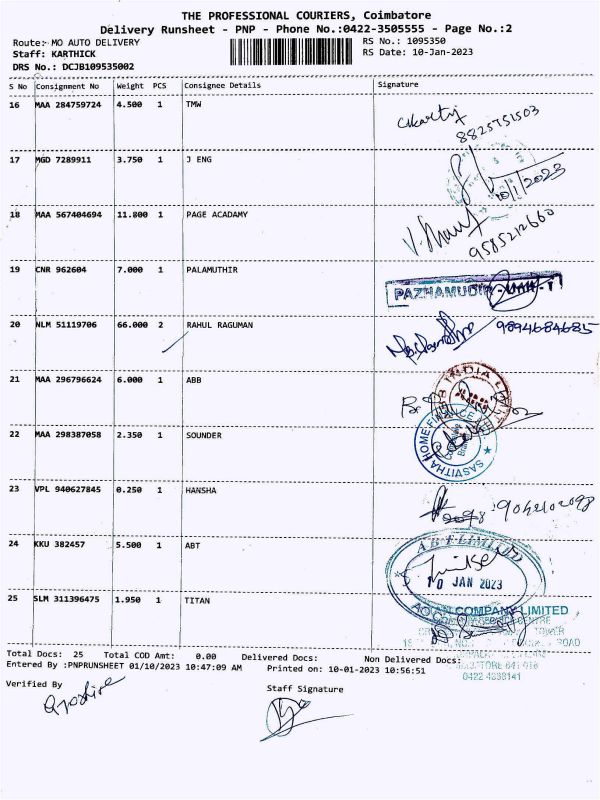 THE PROFESSIONAL COURIERS, Coimbatore
Delivery Runsheet - PNP - Phone No.:0422-3505555 - Page No.:2
Route: MO AUTO DELIVERY RS No.: 1095350
Staff: KARTHICK RS Date: 10-Jan-2023
DRS No.: DCJB109535002
S No Consignment No Weight PCS Consignee Details Signature
16 MAA 284759724 4.500 1 TMW
8825751503
17 MGD 7289911 3.750 1 J ENG
10/1/2023
18 MAA 567404694 11.800 1 PAGE ACADAMY
9585212660
19 CNR 962604 7.000 1 PALAMUTHIR
PAZHAMUDIR
20 NLM 51119706 66.000 2 RAHUL RAGUMAN 9894684685
21 MAA 296796624 6.000 1 ABB
INDIA
22 MAA 298387058 2.350 1 SOUNDER
SASVITHA HOME FINANCE
23 VPL 940627845 0.250 1 HANSHA
24 KKU 382457 5.500 1 ABT
A B T LIMITED
10 JAN 2023
25 SLM 311396475 1.950 1 TITAN
COMPANY LIMITED
ROAD
0422 4398141
Total Docs: 25 Total COD Amt: 0.00 Delivered Docs: Non Delivered Docs:
Entered By :PNPRUNSHEET 01/10/2023 10:47:09 AM Printed on: 10-01-2023 10:56:51
Verified By Staff Signature